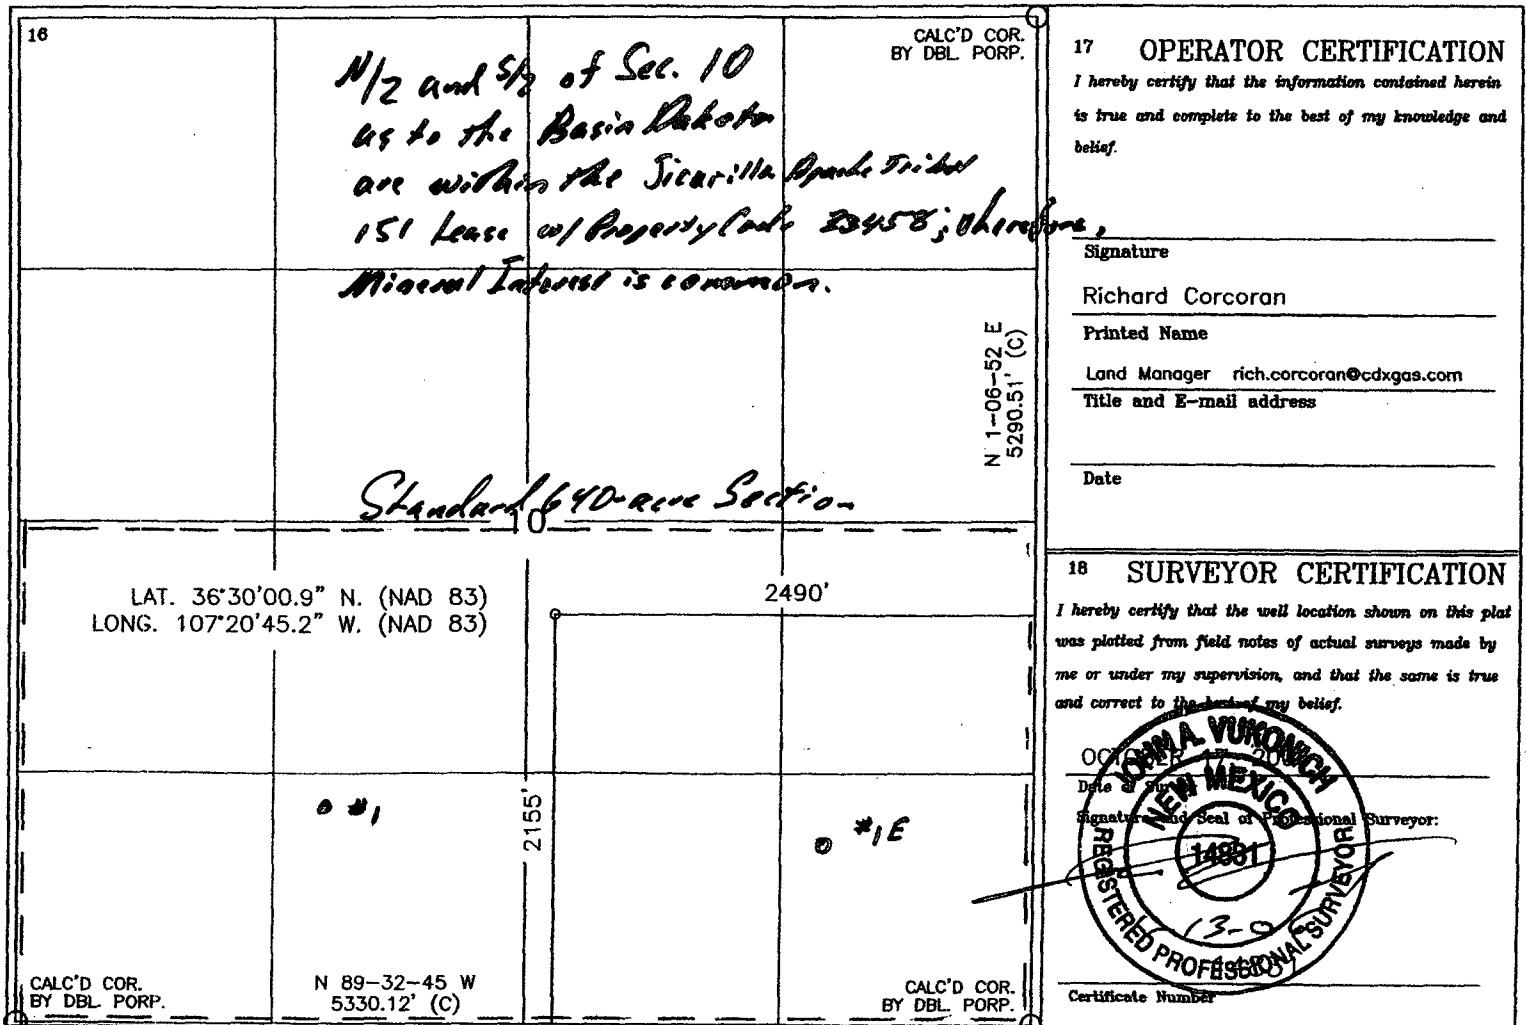 16
CALC'D COR.
BY DBL. PORP.
N/2 and S/2 of Sec. 10
as to the Basin Dakota
are within the Jicarilla Apache Tribal
151 Lease w/ Property Code 23458; therefore,
Mineral Interest is common.
N 1-06-52 E
5290.51' (C)
Standard 640-acre Section
10
LAT. 36°30'00.9" N. (NAD 83)
LONG. 107°20'45.2" W. (NAD 83)
2490'
#1
2155'
#1E
CALC'D COR.
BY DBL. PORP.
N 89-32-45 W
5330.12' (C)
CALC'D COR.
BY DBL. PORP.
17 OPERATOR CERTIFICATION
I hereby certify that the information contained herein
is true and complete to the best of my knowledge and
belief.
Signature
Richard Corcoran
Printed Name
Land Manager rich.corcoran@cdxgas.com
Title and E-mail address
Date
18 SURVEYOR CERTIFICATION
I hereby certify that the well location shown on this plat
was plotted from field notes of actual surveys made by
me or under my supervision, and that the same is true
and correct to the best of my belief.
OCTOBER
Date of Survey
Signature and Seal of Professional Surveyor:
JOHN A. VUKONICH
NEW MEXICO
14831
REGISTERED PROFESSIONAL SURVEYOR
Certificate Number